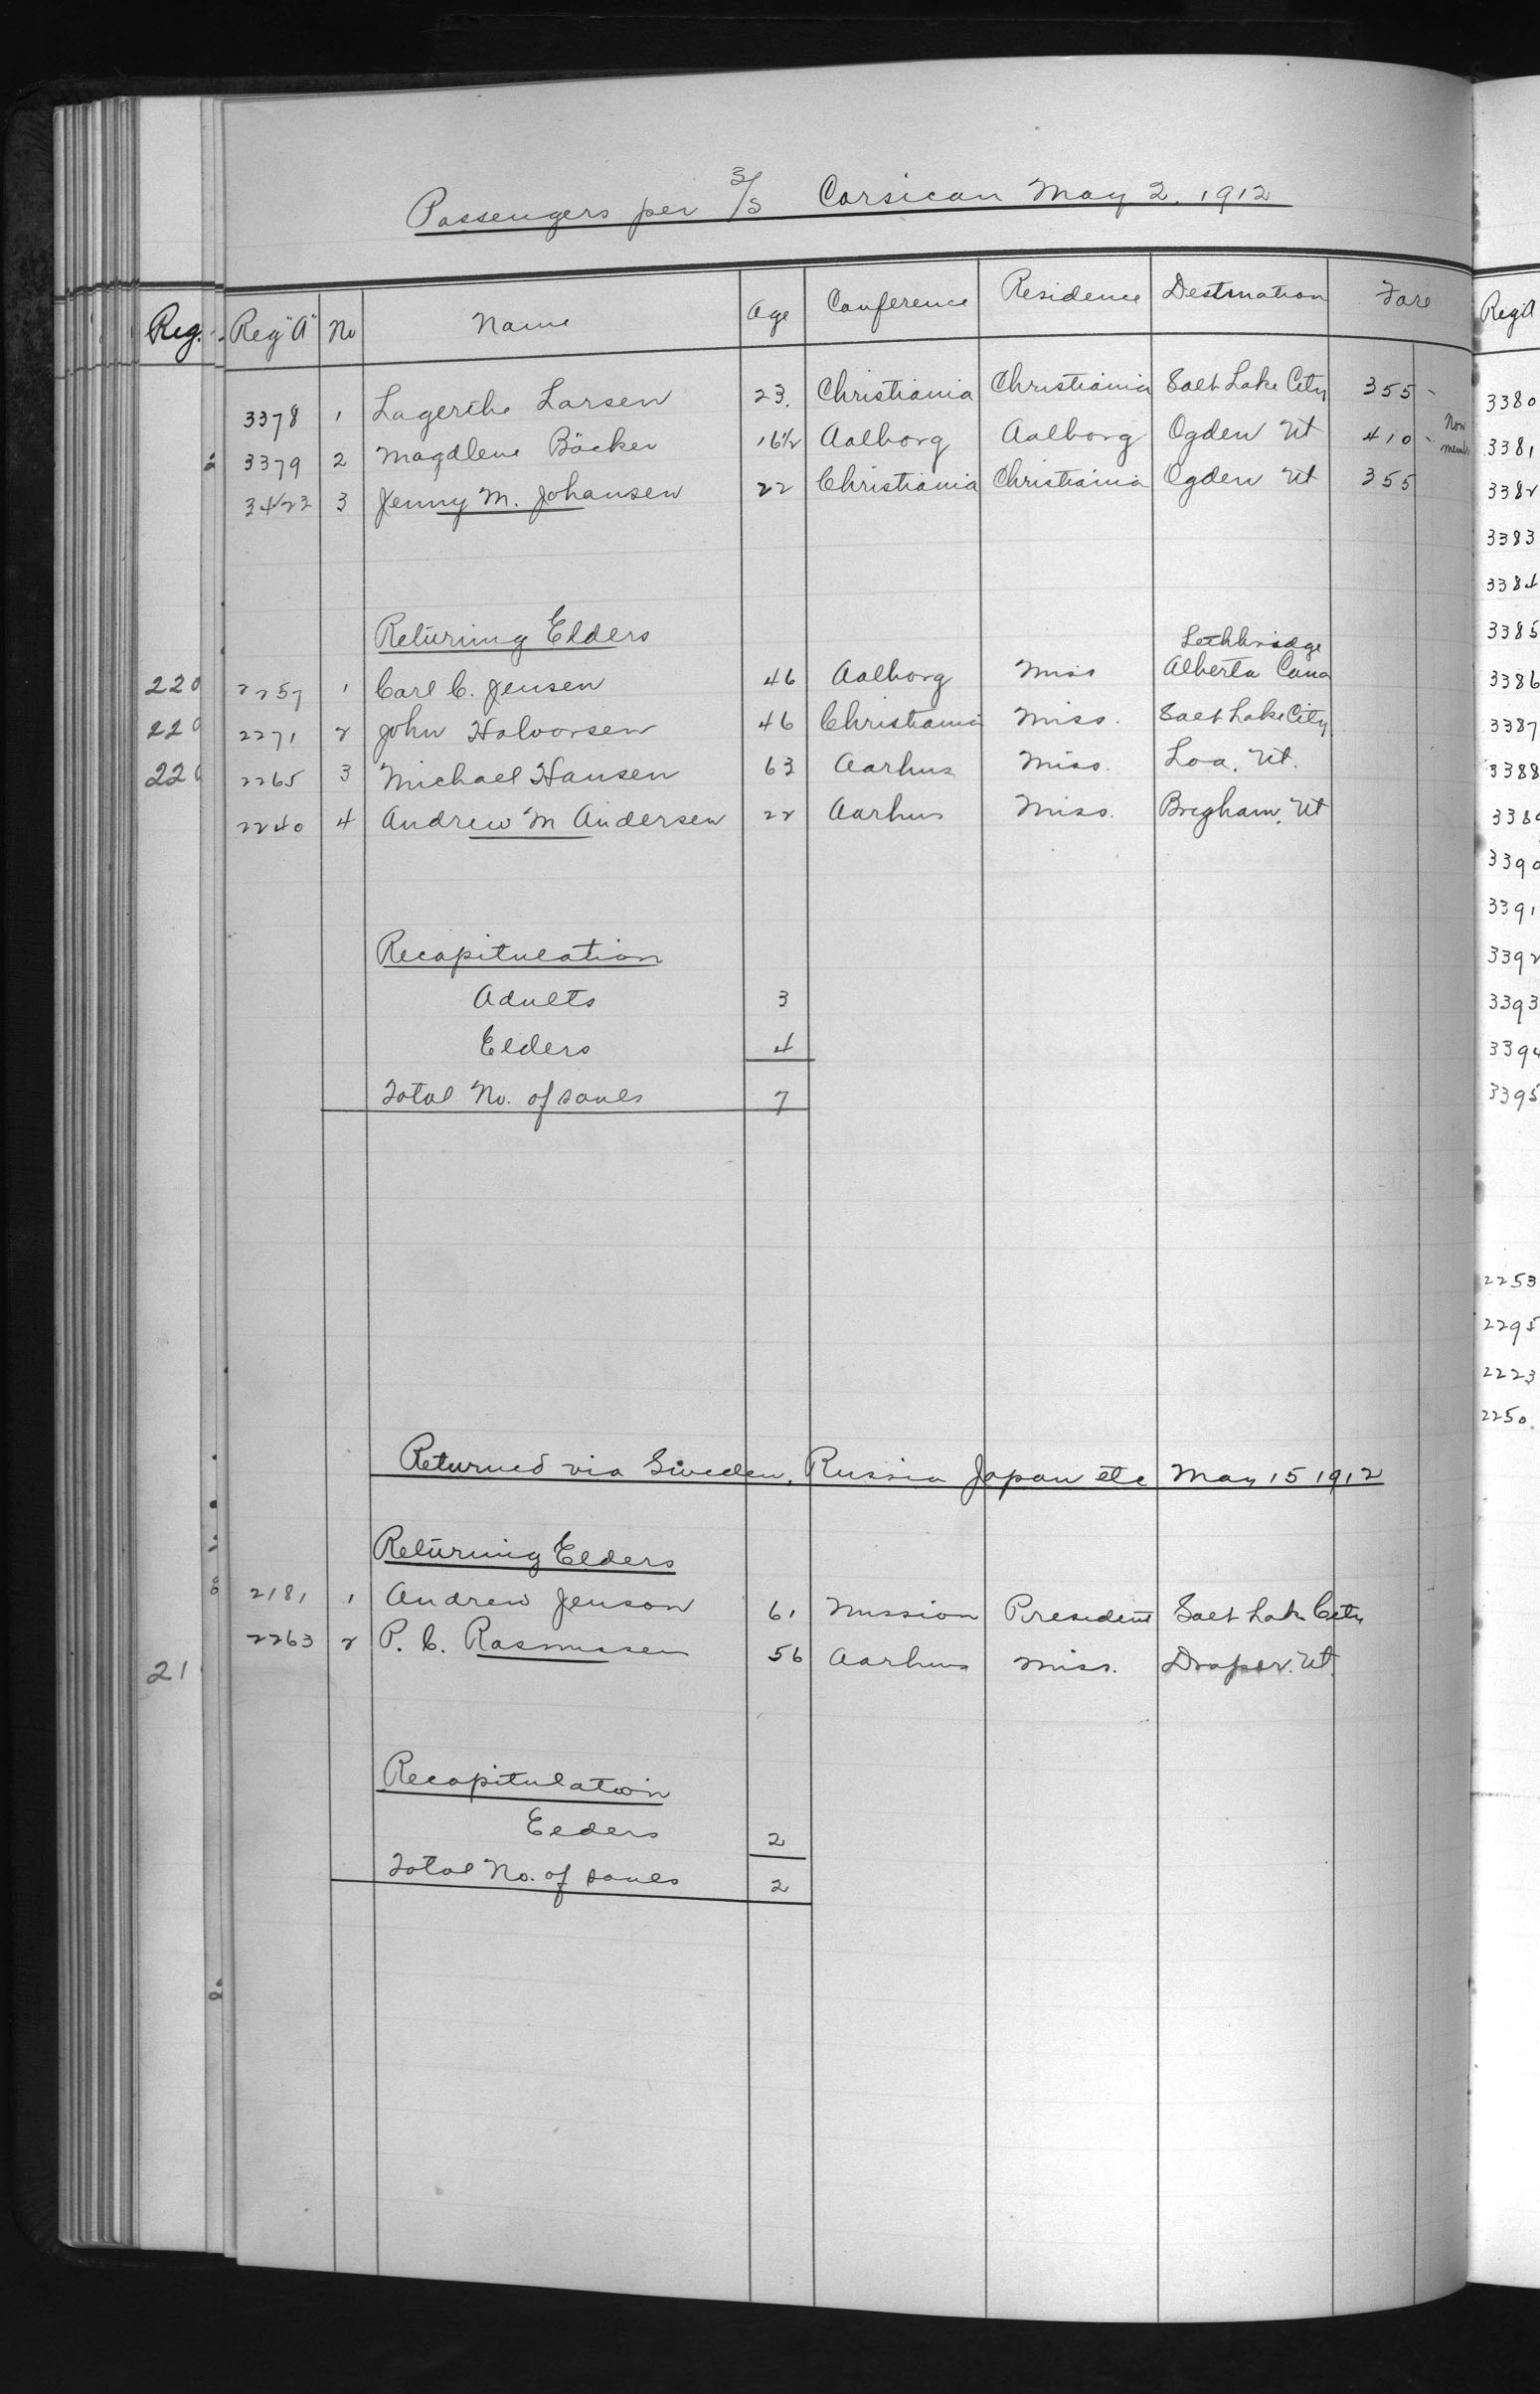 Passengers per S/S Corsican May 2. 1912
Reg. Reg "A" No Name Age Conference Residence Destination Fare Reg A
3378 1 Lagerthe Larsen 23. Christiania Christiania Salt Lake City 355 - 3380
3379 2 Magdlene Bäcker 16½ Aalborg Aalborg Ogden Ut 410 - Non member 3381
3423 3 Jenny M. Johansen 22 Christiania Christiania Ogden Ut 355 3382
3383
3384
Returning Elders 3385
Lethbridge
220 2257 1 Carl C. Jensen 46 Aalborg Miss Alberta Cana 3386
220 2271 2 John Halvorsen 46 Christiania Miss. Salt Lake City 3387
220 2265 3 Michael Hansen 63 Aarhus Miss. Loa. Ut. 3388
2240 4 Andrew M Andersen 22 Aarhus Miss. Brigham. Ut 3389
3390
3391
Recapitulation 3392
Adults 3 3393
Elders 4 3394
Total No. of souls 7 3395
2253
2295
2223
2250.
Returned via Sweden, Russia Japan etc May 15 1912
Returning Elders
2181 1 Andrew Jenson 61 Mission President Salt Lake City
2263 2 P. C. Rasmussen 56 Aarhus Miss. Draper. Ut.
21
Recapitulation
Elders 2
Total No. of souls 2